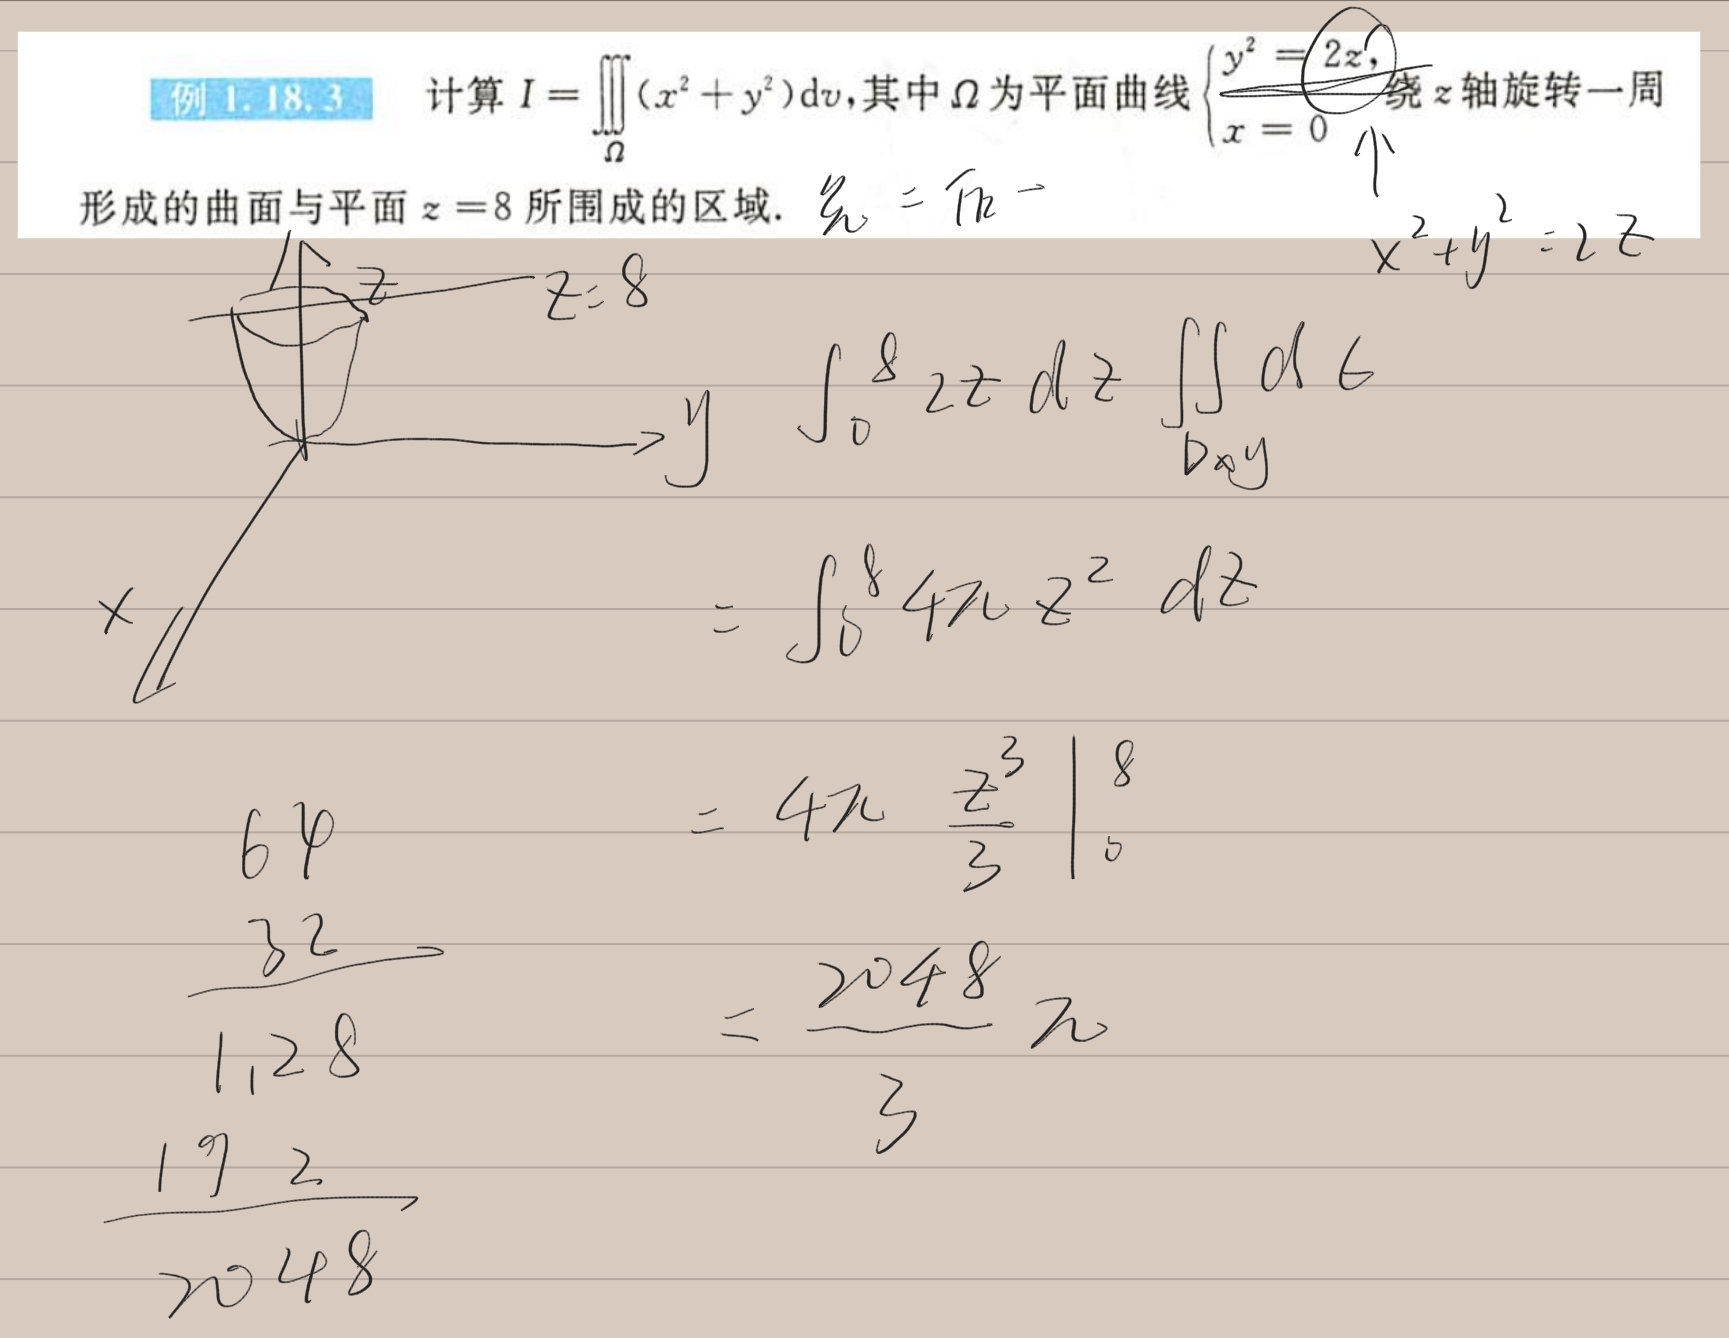 例 1.18.3 计算 I = ∭_Ω (x² + y²)dv,其中 Ω 为平面曲线 { y² = 2z, x = 0 绕 z 轴旋转一周
形成的曲面与平面 z = 8 所围成的区域. 先 = 后一
x² + y² = 2z
z
z = 8
y
x
∫₀⁸ 2z dz ∬_Dxy dσ
= ∫₀⁸ 4π z² dz
= 4π z³/3 |₀⁸
= 2048/3 π
64
32
1,28
19 2
2048